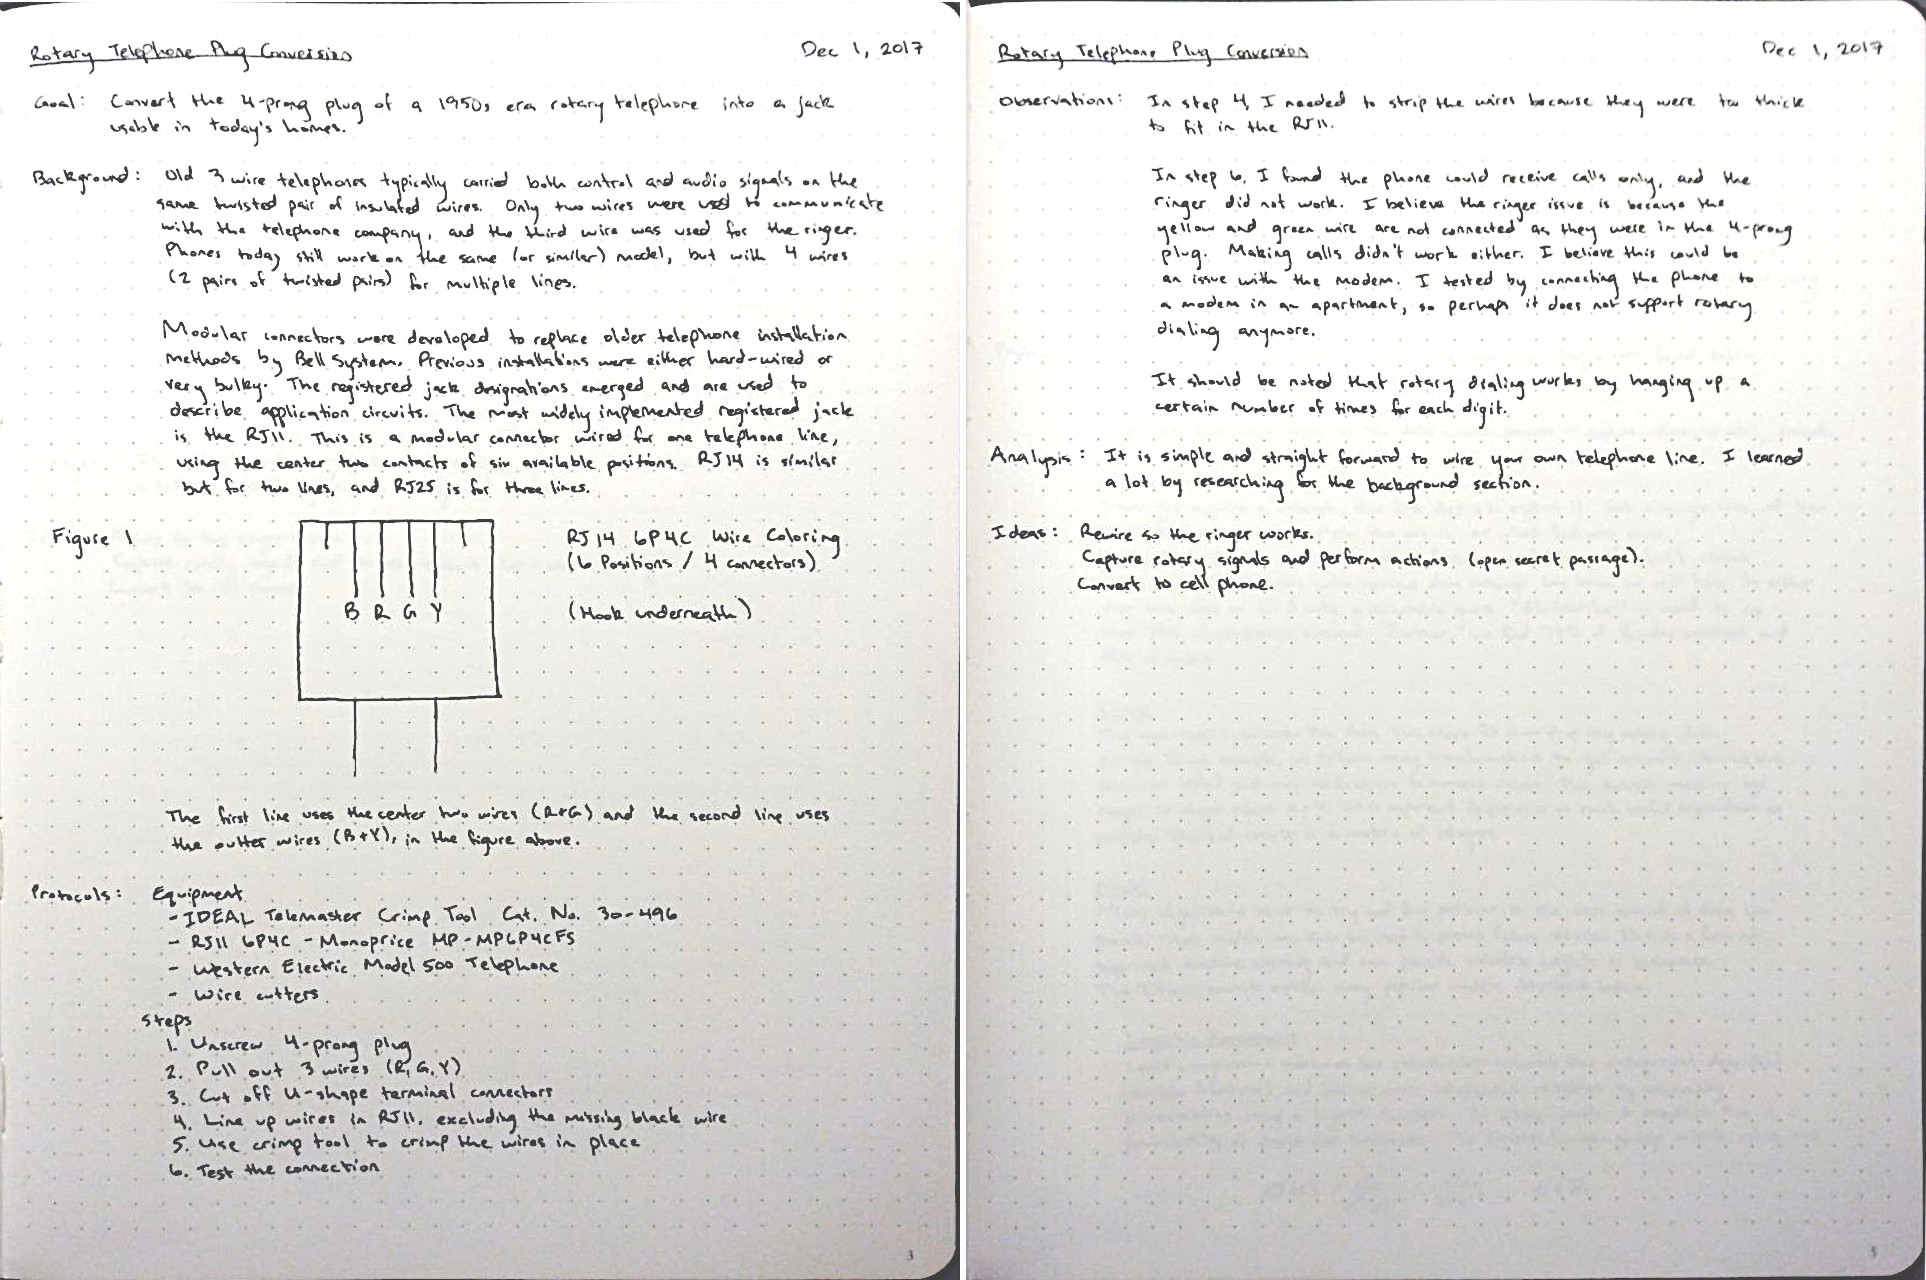 Rotary Telephone Plug Conversion
Dec 1, 2017
Goal: Convert the 4-prong plug of a 1950s era rotary telephone into a jack
usable in today's homes.
Background: Old 3 wire telephones typically carried both control and audio signals on the
same twisted pair of insulated wires. Only two wires were used to communicate
with the telephone company, and the third wire was used for the ringer.
Phones today still work on the same (or similar) model, but with 4 wires
(2 pairs of twisted pairs) for multiple lines.
Modular connectors were developed to replace older telephone installation
methods by Bell System. Previous installations were either hard-wired or
very bulky. The registered jack designations emerged and are used to
describe application circuits. The most widely implemented registered jack
is the RJ11. This is a modular connector wired for one telephone line,
using the center two contacts of six available positions. RJ14 is similar
but for two lines, and RJ25 is for three lines.
Figure 1
RJ14 6P4C Wire Coloring
(6 Positions / 4 connectors)
B R G Y
(Hook underneath)
The first line uses the center two wires (R+G) and the second line uses
the outter wires (B+Y), in the figure above.
Protocols: Equipment
- IDEAL Telemaster Crimp Tool Cat. No. 30-496
- RJ11 6P4C - Monoprice MP-MP6P4CFS
- Western Electric Model 500 Telephone
- Wire cutters
Steps
1. Unscrew 4-prong plug
2. Pull out 3 wires (R, G, Y)
3. Cut off U-shape terminal connectors
4. Line up wires in RJ11, excluding the missing black wire
5. Use crimp tool to crimp the wires in place
6. Test the connection
3
Rotary Telephone Plug Conversion
Dec 1, 2017
Observations: In step 4, I needed to strip the wires because they were too thick
to fit in the RJ11.
In step 6, I found the phone could receive calls only, and the
ringer did not work. I believe the ringer issue is because the
yellow and green wire are not connected as they were in the 4-prong
plug. Making calls didn't work either. I believe this could be
an issue with the modem. I tested by connecting the phone to
a modem in an apartment, so perhaps it does not support rotary
dialing anymore.
It should be noted that rotary dialing works by hanging up a
certain number of times for each digit.
Analysis: It is simple and straight forward to wire your own telephone line. I learned
a lot by researching for the background section.
Ideas: Rewire so the ringer works.
Capture rotary signals and perform actions (open secret passage).
Convert to cell phone.